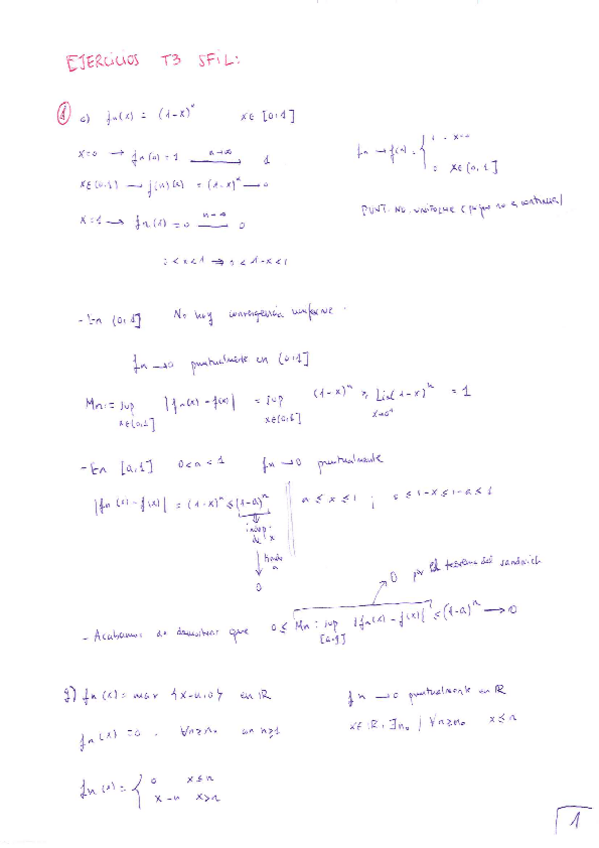 EJERCICIOS T3 SFIL:
① c) fn(x) = (1-x)^n x∈[0,1]
x=0 → fn(0)=1 —n→∞→ 1
fn → f(x) = { 1 x=0
0 x∈(0,1]
x∈(0,1) → f(n)(x) = (1-x)^n → 0
x=1 → fn(1)=0 —n→∞→ 0
PUNT. NO UNIFORME (porque no es continua)
0<x<1 ⇒ 0<1-x<1
- En (0,1] No hay convergencia uniforme.
fn → 0 puntualmente en (0,1]
Mn := sup |fn(x) - f(x)| = sup (1-x)^n ≥ lim (1-x)^n = 1
x∈[0,1] x∈[0,1] x→0+
- En [a,1] 0<a<1 fn → 0 puntualmente
|fn(x) - f(x)| = (1-x)^n ≤ (1-a)^n || a ≤ x ≤ 1 ; 0 ≤ 1-x ≤ 1-a ≤ 1
indep.
de x
tiende
a
0
0 por el teorema del sandwich
- Acabamos de demostrar que 0 ≤ Mn := sup |fn(x) - f(x)| ≤ (1-a)^n → 0
[a,1]
g) fn(x) = max {x-n,0} en ℝ fn → 0 puntualmente en ℝ
fn(x) = 0 . ∀n≥n₀ con n≥1 x∈ℝ, ∃n₀ / ∀n≥n₀ x≤n
fn(x) = { 0 x≤n
x-n x>n
1